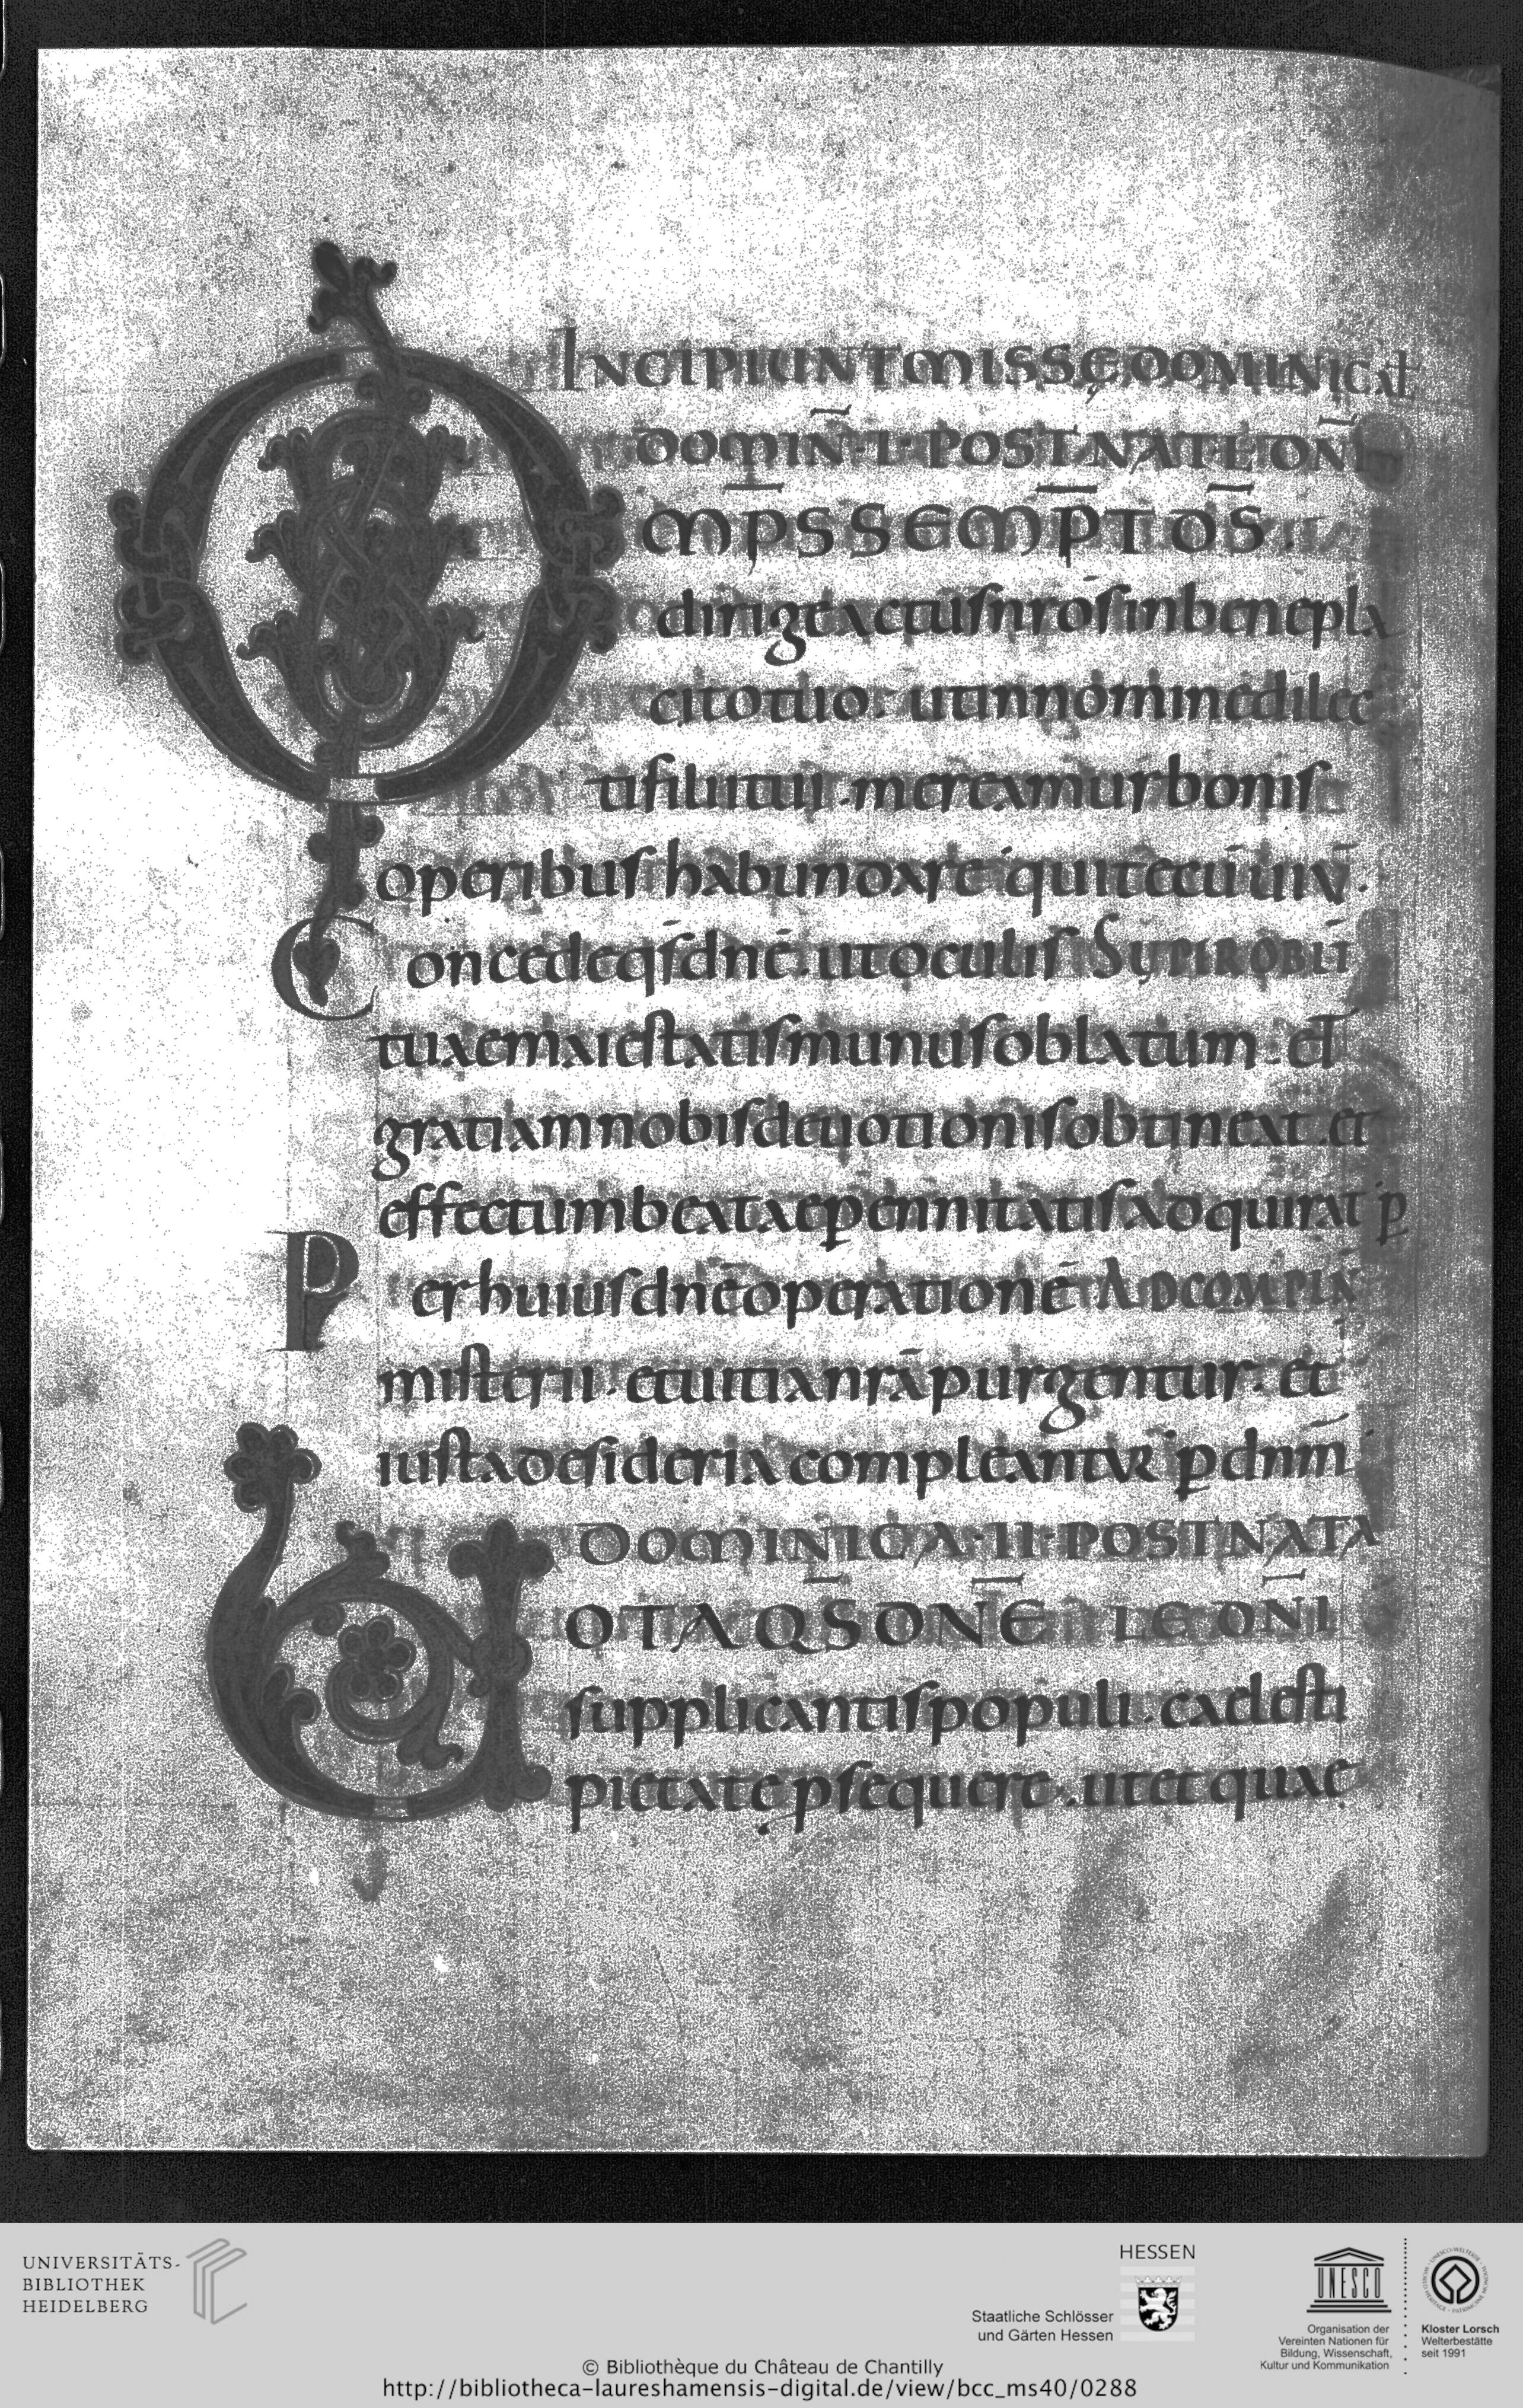 INCIPIUNT MISSĘ DOMINICAL
DOMIN̄ · I · POST NAT · L̄ · DN̄I
OMP̄S SEMP̄T D̄S .
dirige actus nrōs in benepla
cito tuo . ut in nomine dilec
ti filii tui . mereamur bonis
operibus habundare . qui tecū uiv̄ .
Concede qs̄ dnē . ut oculis SUPER OBLĪ
tuae maiestatis munus oblatum . et
gratiam nobis deuotionis obtineat . et
effectum beatae ꝑennitatis adquirat . ꝑ
Per huius dnē operationē AD COMPLN̄
misterii . et uitia nrā purgentur . et
iusta desideria compleantur . ꝑ dnm̄
DOMINICA · II · POST NATA
UOTA QS̄ DN̄E LE DN̄I
supplicantis populi . caelesti
pietate ꝓsequere . ut et quae
UNIVERSITÄTS-
BIBLIOTHEK
HEIDELBERG
HESSEN
Staatliche Schlösser
und Gärten Hessen
UNESCO
Organisation der
Vereinten Nationen für
Bildung, Wissenschaft,
Kultur und Kommunikation
Kloster Lorsch
Welterbestätte
seit 1991
© Bibliothèque du Château de Chantilly
http://bibliotheca-laureshamensis-digital.de/view/bcc_ms40/0288